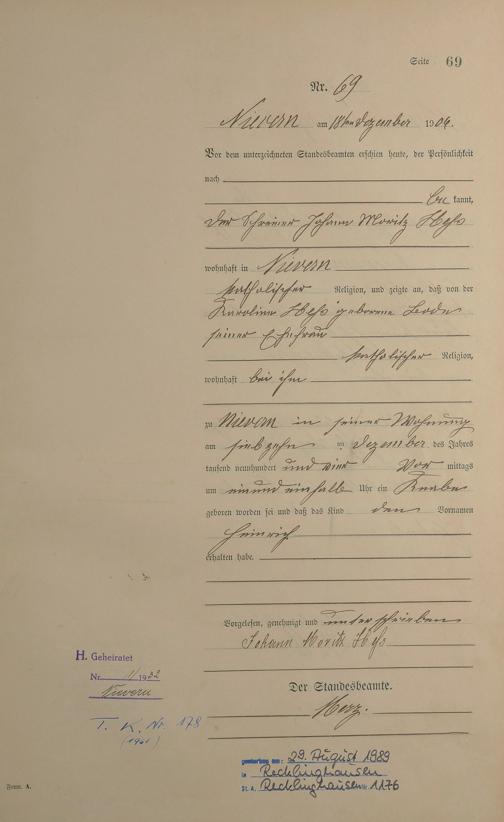 Seite 69
Nr. 69
Nievern am 18ten Dezember 1904.
Vor dem unterzeichneten Standesbeamten erschien heute, der Persönlichkeit
nach
be kannt,
der Schreiner Johann Moritz Heß
wohnhaft in Nievern
katholischer Religion, und zeigte an, daß von der
Karoline Heß geborene Bode
seiner Ehefrau
katholischer Religion,
wohnhaft bei ihm
zu Nievern in seiner Wohnung
am siebzehn ten Dezember des Jahres
tausend neunhundert und vier Vor mittags
um einundeinhalb Uhr ein Knabe
geboren worden sei und daß das Kind den Vornamen
Heinrich
erhalten habe.
Vorgelesen, genehmigt und unterschrieben
Johann Moritz Heß
Der Standesbeamte.
Merz.
H. Geheiratet
Nr. 1/1932
Nievern
T. K. Nr. 178
(1961)
gestorben am: 29. August 1989
in Recklinghausen
St. A. Recklinghausen Nr. 1176
Form. A.